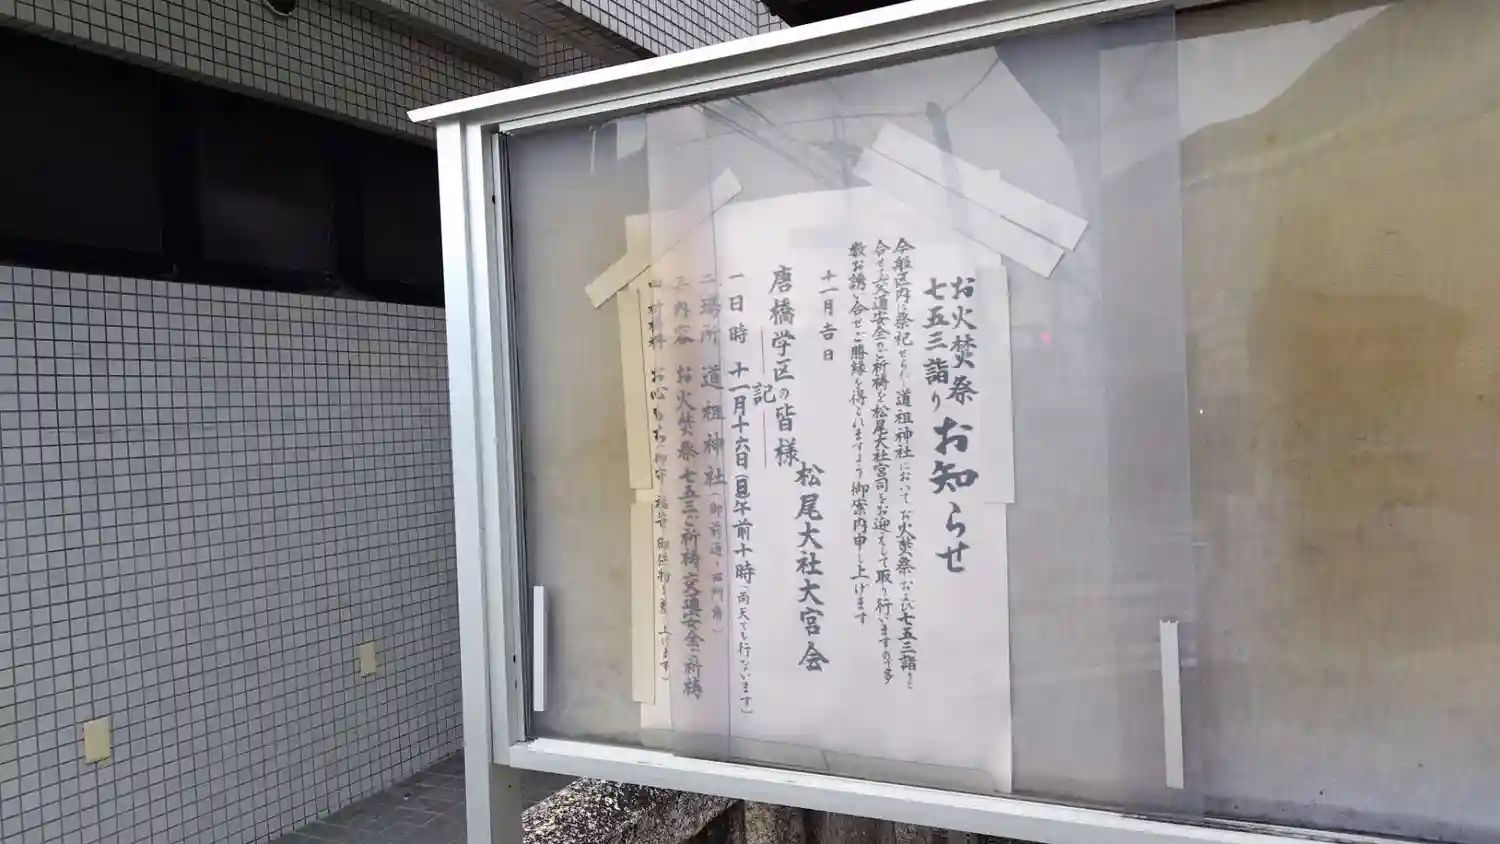 お火焚祭
七五三詣り
お知らせ
今般区内に祭祀せられ 道祖神社において お火焚祭 および七五三詣りと
合せ 交通安全のご祈祷を松尾大社宮司をお迎えして取り行いますので多
数お誘い合せご勝縁を得られますよう御案内申し上げます
十一月吉日
松尾大社大宮会
唐橋学区の皆様
記
一日時 十一月十六日(日)午前十時(雨天でも行ないます)
二場所 道祖神社(御前通・西門角)
三内容 お火焚祭 七五三ご祈祷 交通安全ご祈祷
お心もち